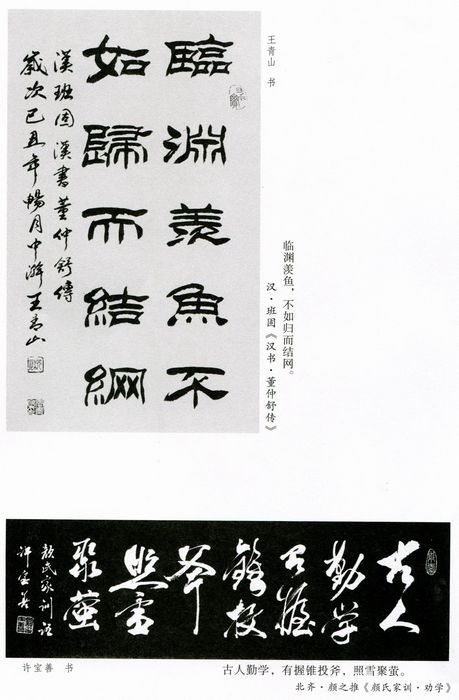 王青山 书
臨淵羨魚不
如歸而結網
漢班固漢書董仲舒傳
歲次己丑年暢月中澣王青山
临渊羡鱼，不如归而结网。
汉·班固《汉书·董仲舒传》
古人
勤学
有握
錐投
斧
照雪
聚螢
颜氏家训语
许宝善
许宝善 书
古人勤学，有握锥投斧，照雪聚萤。
北齐·颜之推《颜氏家训·劝学》